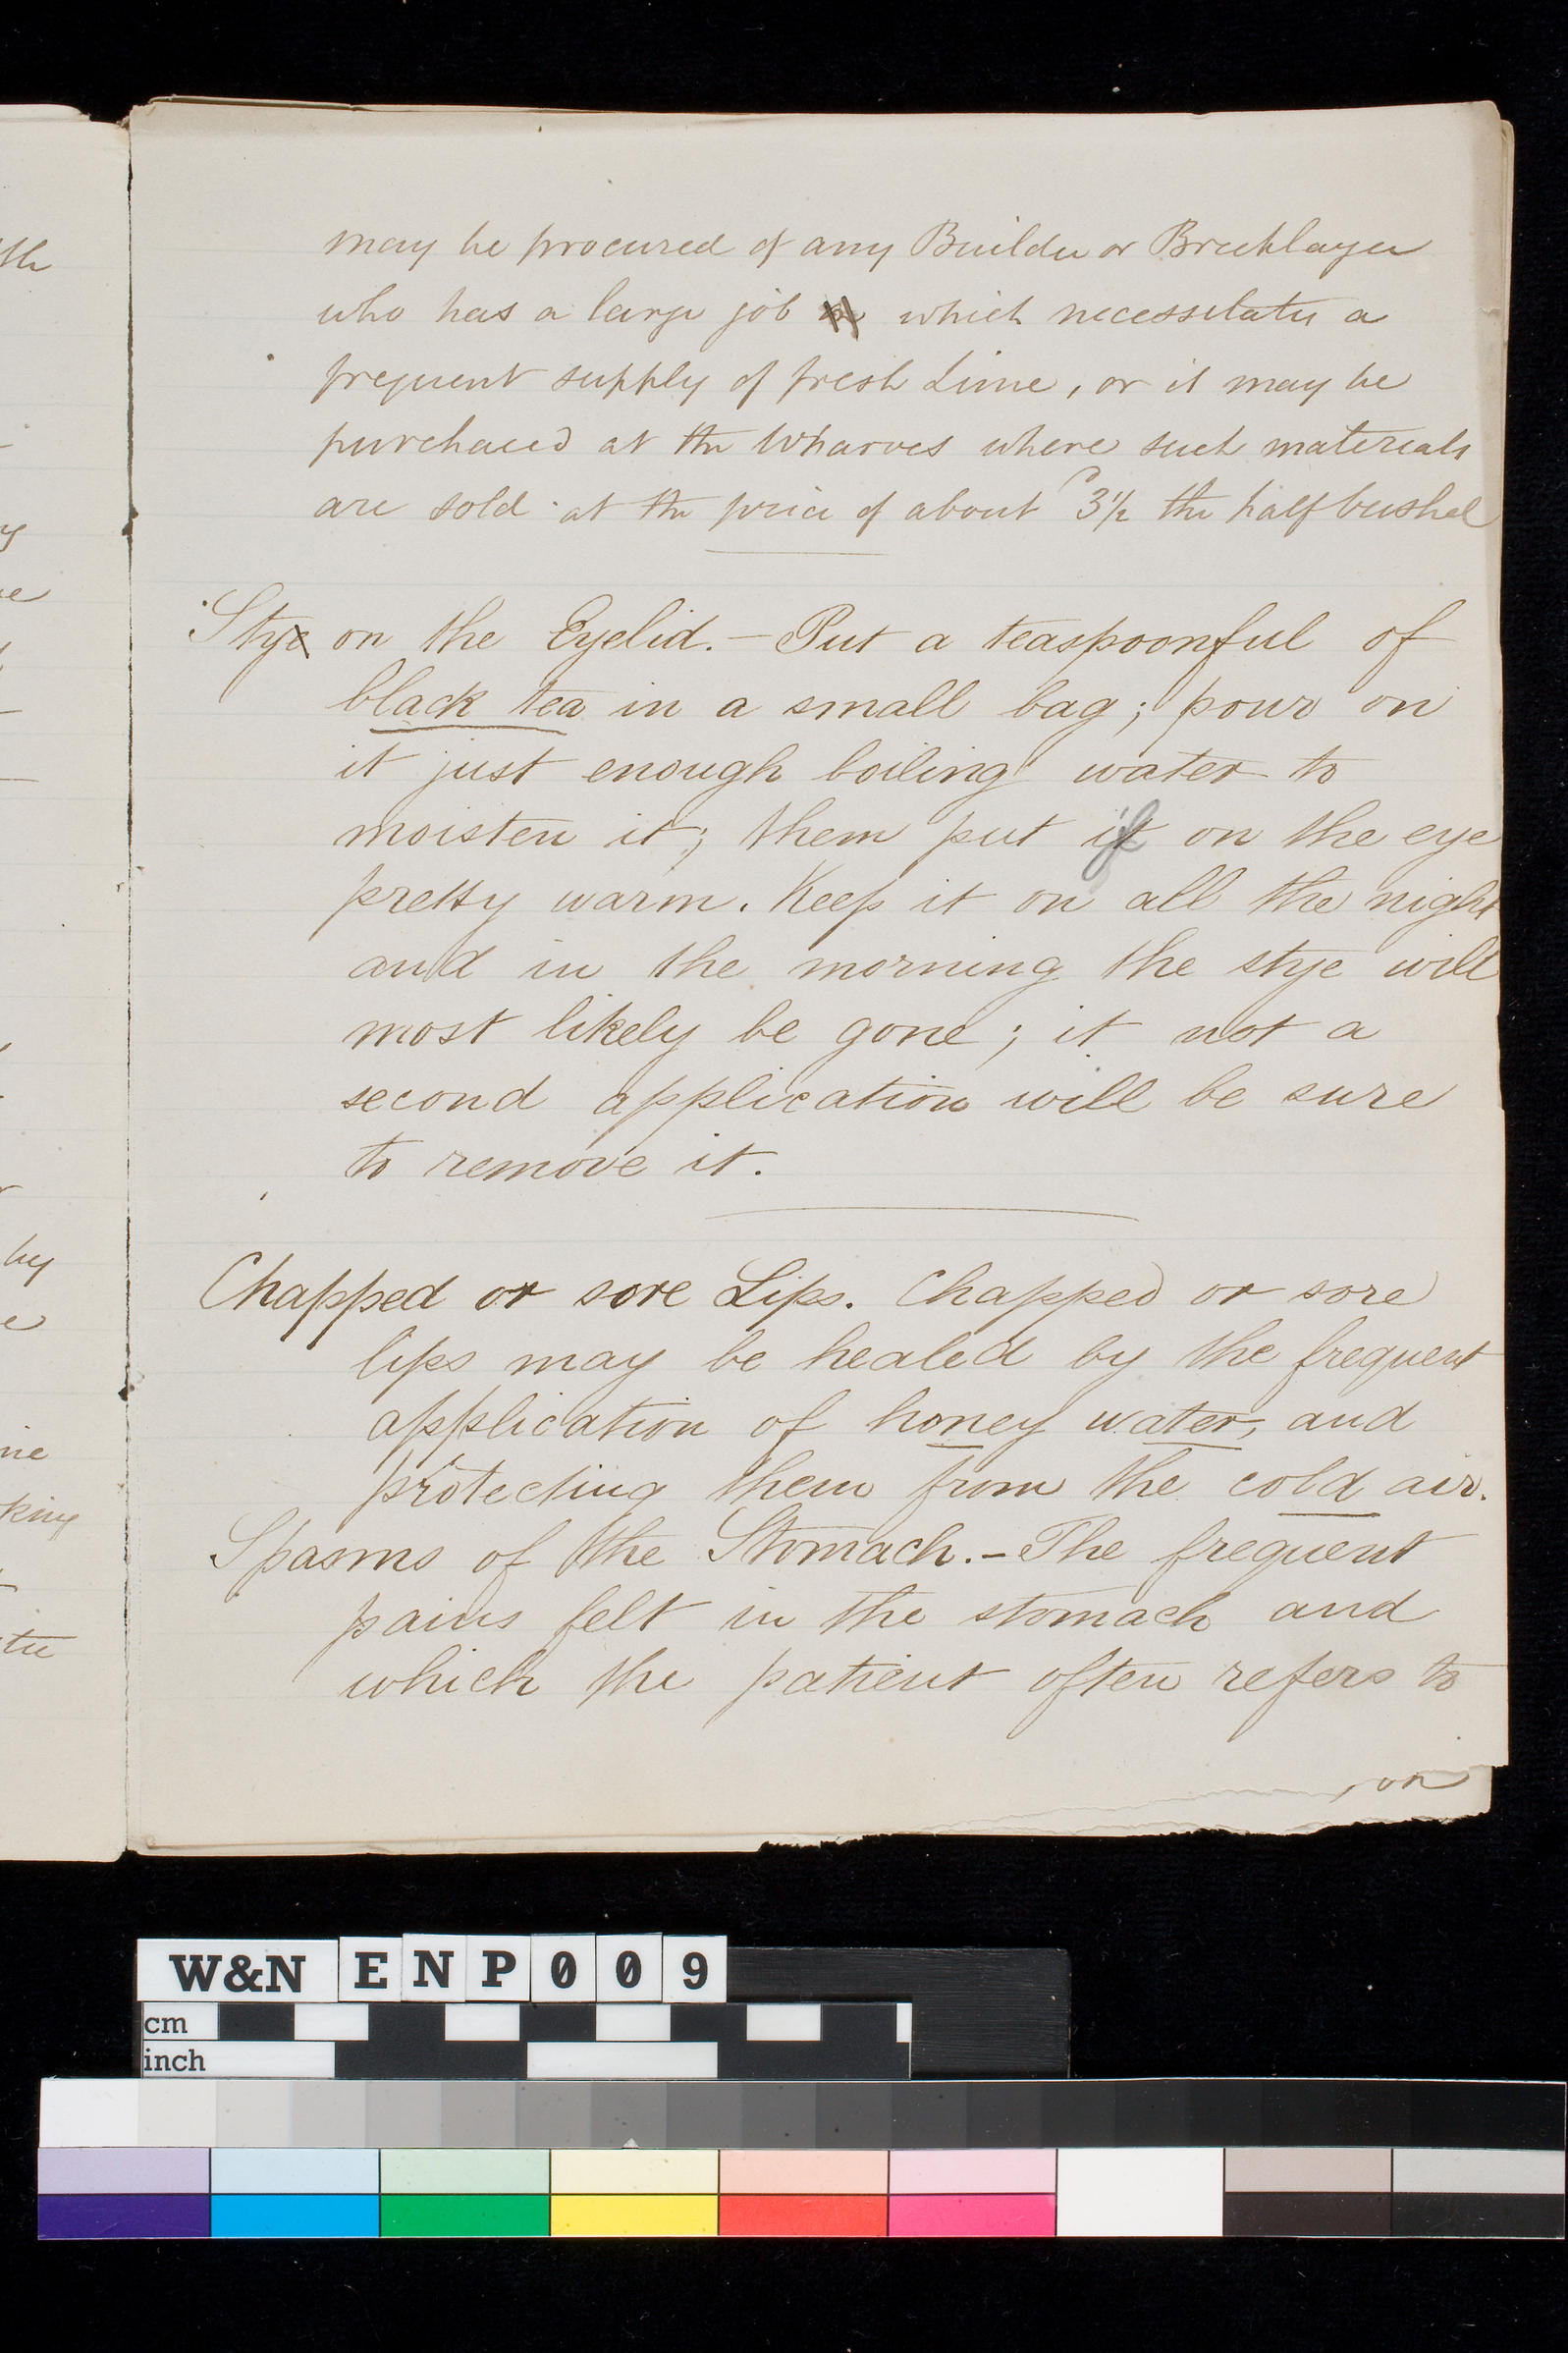 th
y
e
by
e
ne
king
te
may be procured of any Builder or Bricklayer
who has a large job which necessitates a
frequent supply of fresh Lime, or it may be
purchased at the Wharves where such materials
are sold at the price of about 3½ the half bushel
Stye on the Eyelid. – Put a teaspoonful of
black tea in a small bag; pour on
it just enough boiling water to
moisten it; them put it on the eye
pretty warm. Keep it on all the night
and in the morning the stye will
most likely be gone; it not a
second application will be sure
to remove it.
Chapped or sore Lips. Chapped or sore
lips may be healed by the frequent
application of honey water, and
protecting them from the cold air.
Spasms of the Stomach. – The frequent
pains felt in the stomach and
which the patient often refers to
on
W&N ENP009
cm
inch